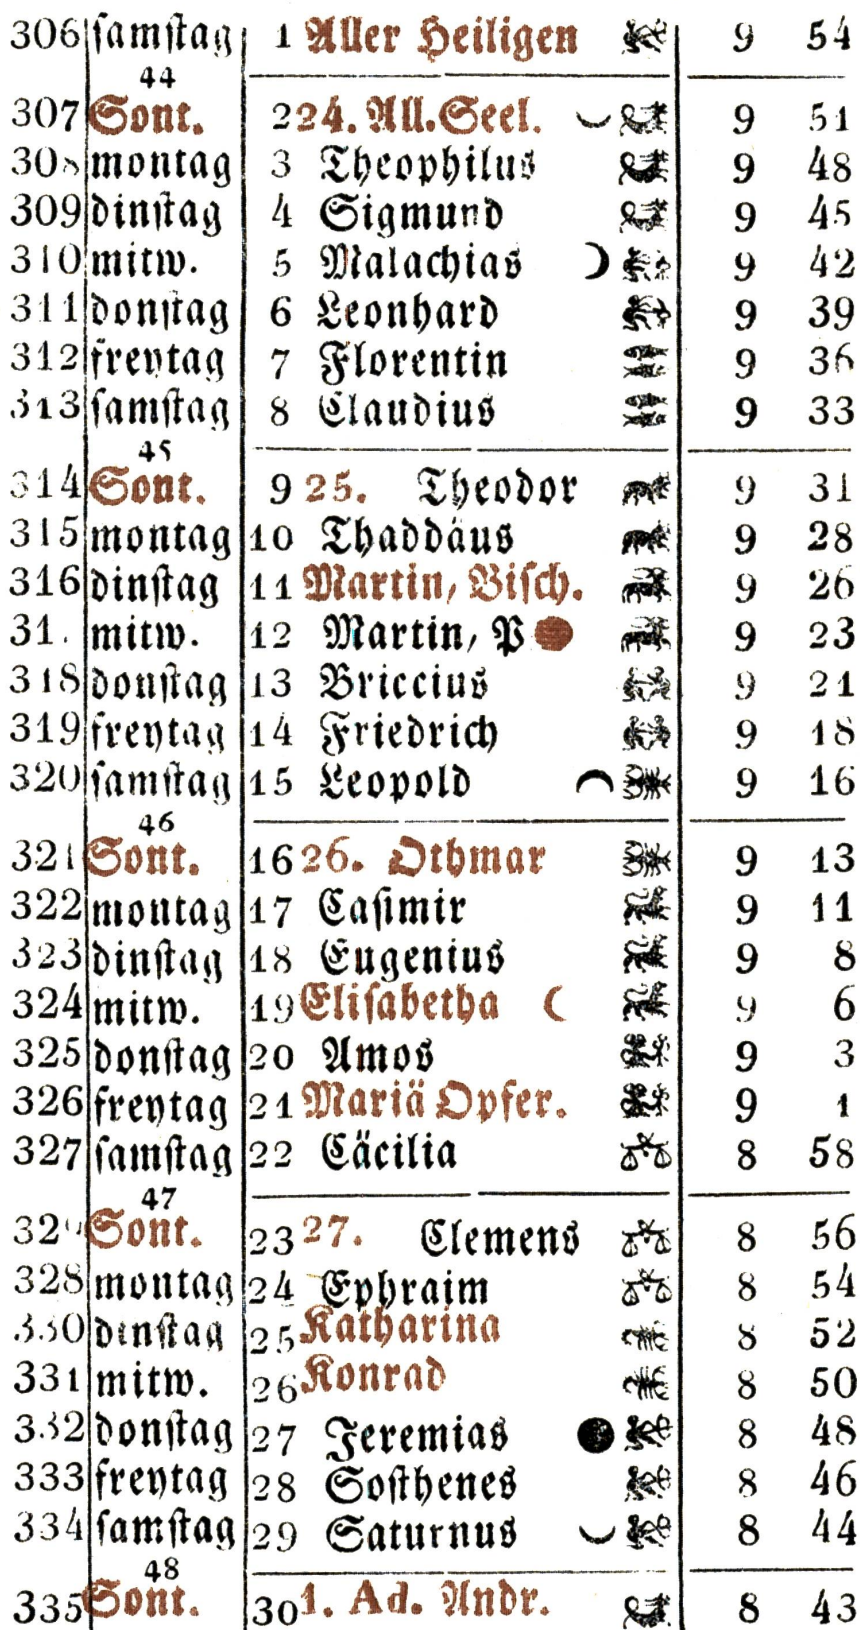 306 ſamſtag 1 Aller Heiligen 9 54
44
307 Sont. 2 24. All. Seel. 9 51
308 montag 3 Theophilus 9 48
309 dinſtag 4 Sigmund 9 45
310 mitw. 5 Malachias 9 42
311 donſtag 6 Leonhard 9 39
312 freytag 7 Florentin 9 36
313 ſamſtag 8 Claudius 9 33
45
314 Sont. 9 25. Theodor 9 31
315 montag 10 Thaddäus 9 28
316 dinſtag 11 Martin, Biſch. 9 26
31. mitw. 12 Martin, P 9 23
318 donſtag 13 Briccius 9 21
319 freytag 14 Friedrich 9 18
320 ſamſtag 15 Leopold 9 16
46
321 Sont. 16 26. Othmar 9 13
322 montag 17 Caſimir 9 11
323 dinſtag 18 Eugenius 9 8
324 mitw. 19 Eliſabetha 9 6
325 donſtag 20 Amos 9 3
326 freytag 21 Mariä Opfer. 9 1
327 ſamſtag 22 Cäcilia 8 58
47
Sont. 23 27. Clemens 8 56
328 montag 24 Ephraim 8 54
330 dinſtag 25 Katharina 8 52
331 mitw. 26 Konrad 8 50
332 donſtag 27 Jeremias 8 48
333 freytag 28 Soſthenes 8 46
334 ſamſtag 29 Saturnus 8 44
48
335 Sont. 30 1. Ad. Andr. 8 43